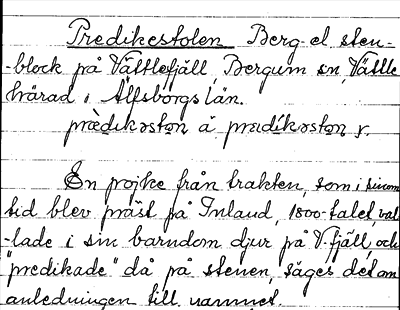 Predikestolen Berg- el sten-
-block på Vättlefjäll, Bergum sn, Vättle
härad i Älfsborgs län.
prèdikəston å prèdikəston r.
En pojke från trakten, som i sinom
tid blev präst på Inland, 1800-talet, val-
-lade i sin barndom djur på V-fjäll, och
"predikade" då på stenen, säges det om
anledningen till namnet.